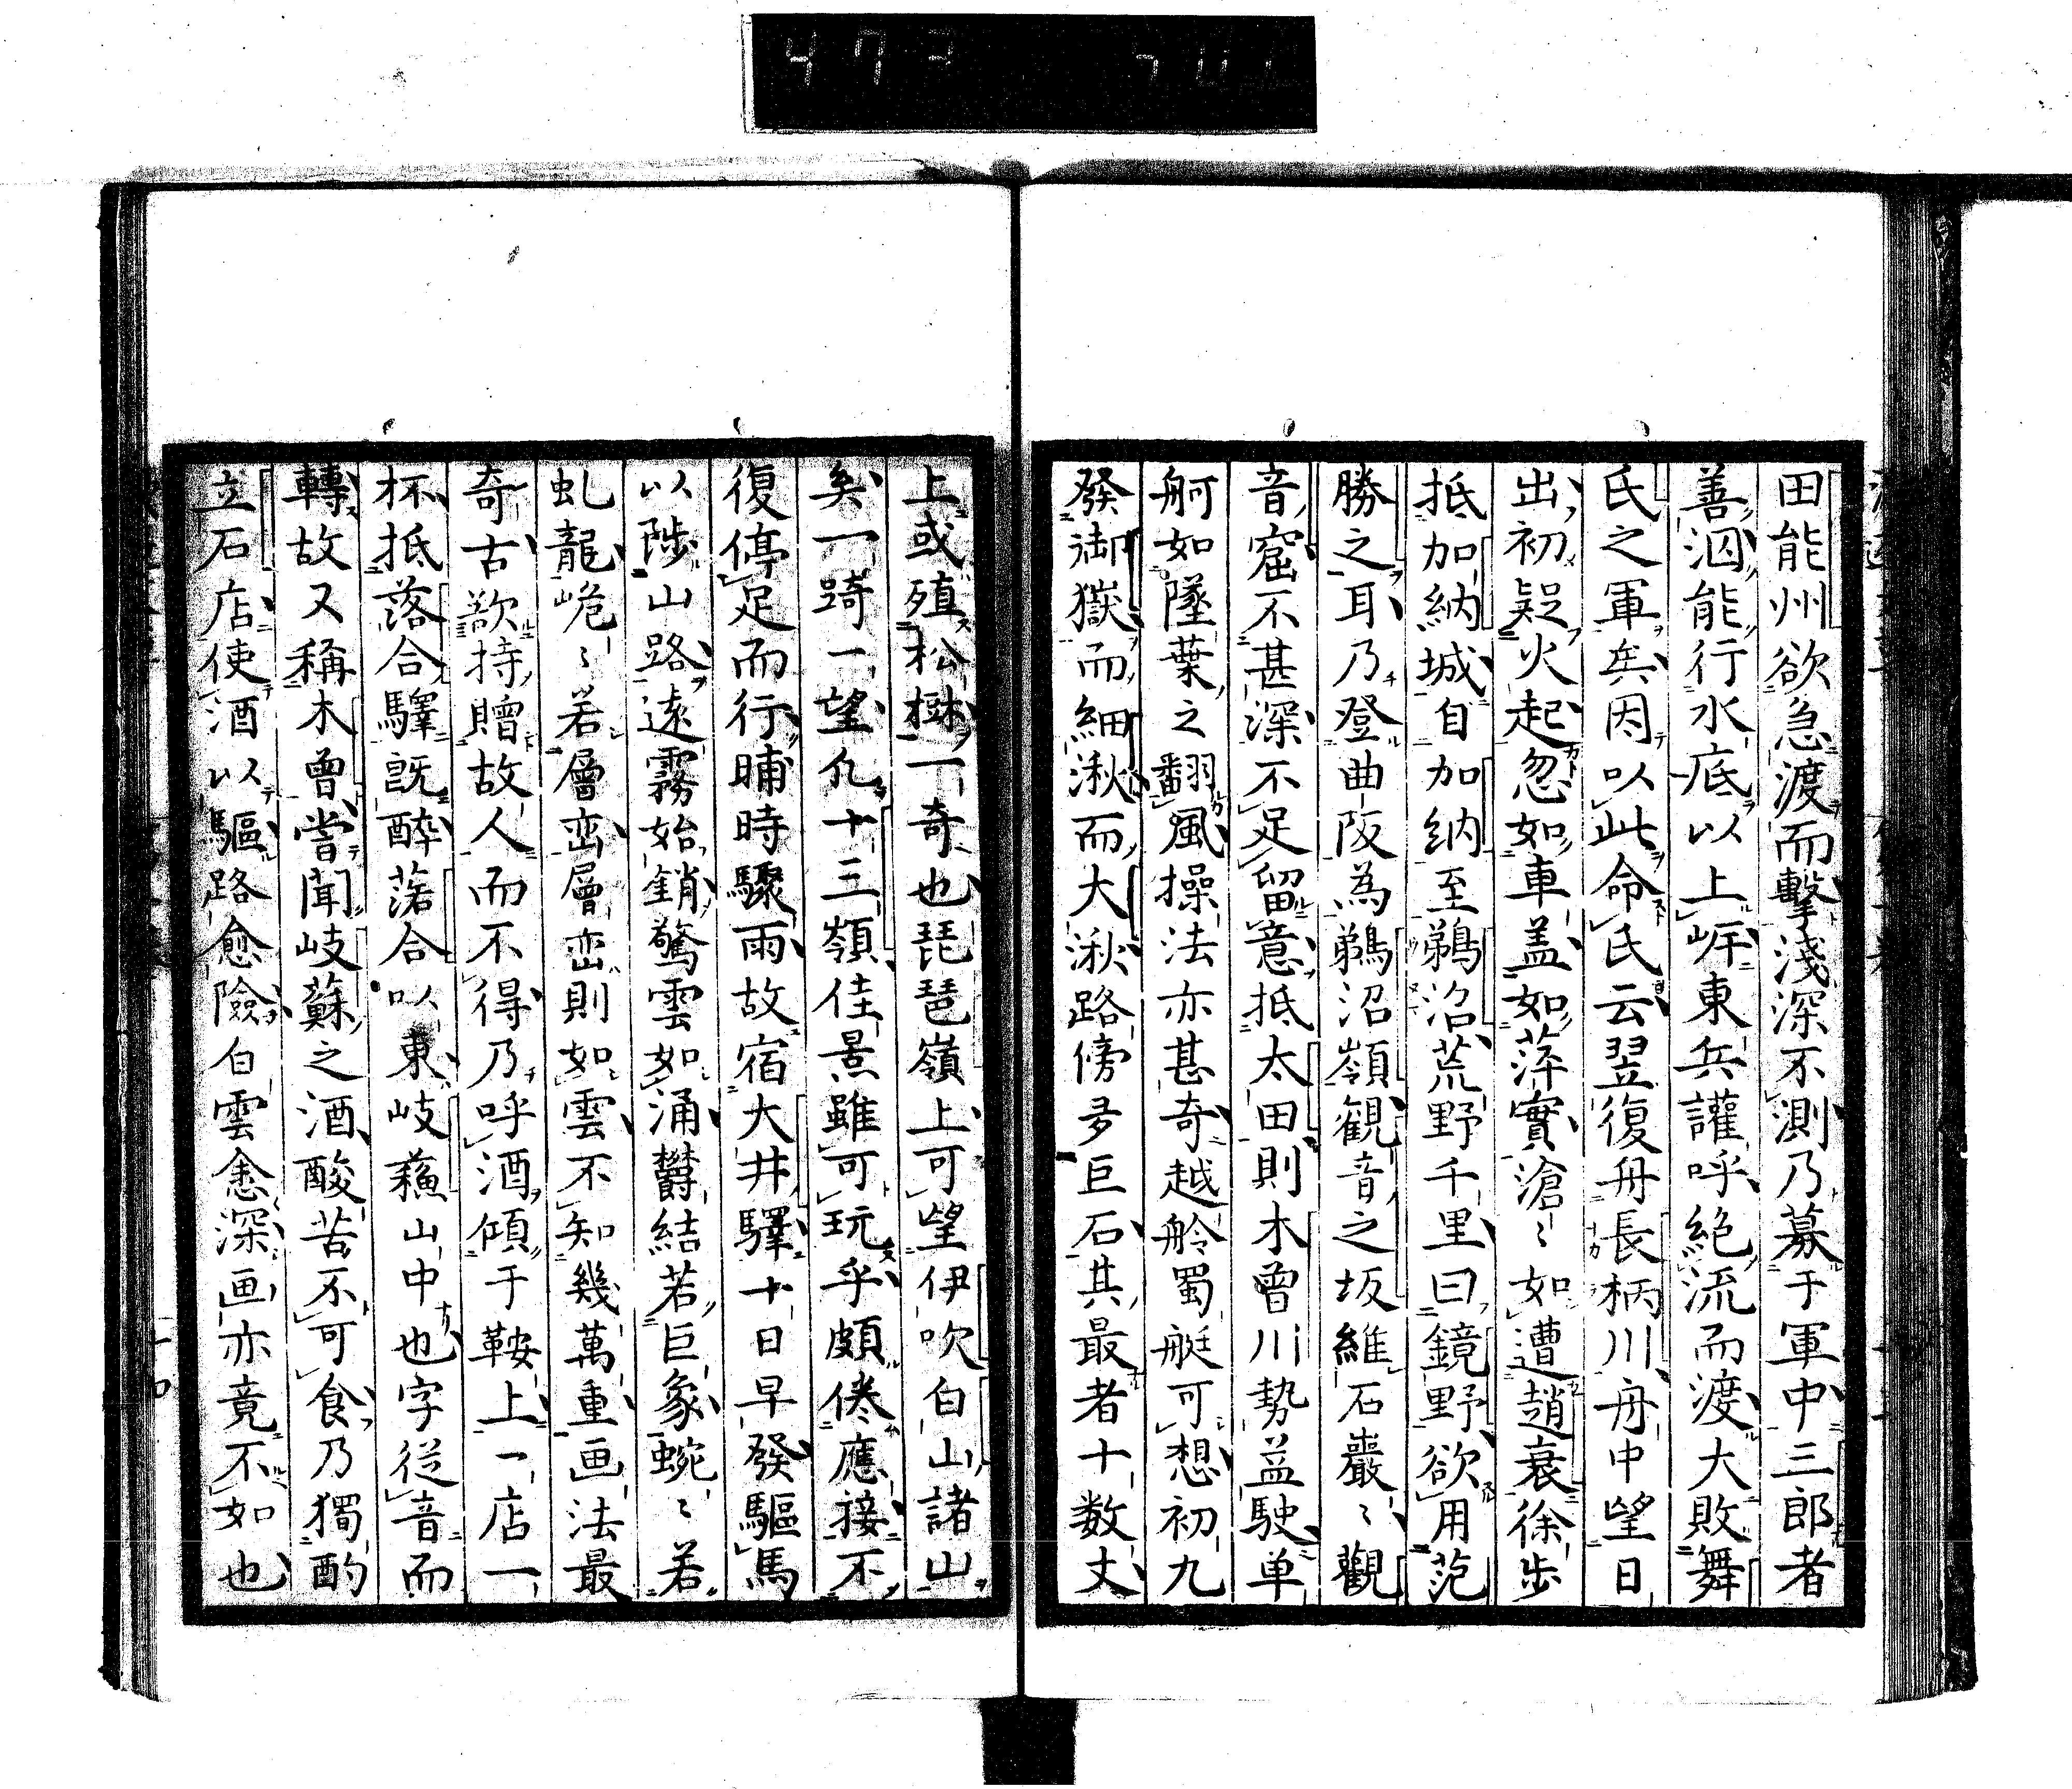 田能州欲急渡而擊淺深不測乃募于軍中三郎者
善泅能行水底以上㟁東兵讙呼絶流而渡大敗舞
氏之軍矣因以此命氏云翌復舟長柄川舟中望日
出初疑火起忽如車盖如萍實滄〻如遭趙衰徐步
抵加納城自加納至鵜沼荒野千里曰鏡野欲用范
勝之耳乃登曲阪為鵜沼嶺觀音之坂維石巖〻觀
音窟不甚深不足留意抵太田則木曾川勢益駛单
舸如墜葉之翻風操法亦甚奇越舲蜀艇可想初九
發御嶽而細湫而大湫路傍多巨石其最者十数丈
上或殖松樾一奇也琵琶嶺上可望伊吹白山諸山
矣一踦一望凢十三嶺佳景雖可玩乎頗倦應接不
復停足而行晡時驟雨故宿大井驛十日早發驅馬
以陟山路遠霧始銷驚雲如涌欝結若巨象蜿〻若
虬龍峗〻若層峦層峦則如雲不知幾萬重画法最
奇古歘持贈故人而不得乃呼酒傾于鞍上一店一
杯抵落合驛旣醉落合以東岐蘓山中也字従音而
轉故又稱木曾嘗聞岐蘇之酒酸苦不可食乃獨酌
立石店使酒以驅路愈險白雲愈深画亦竟不如也